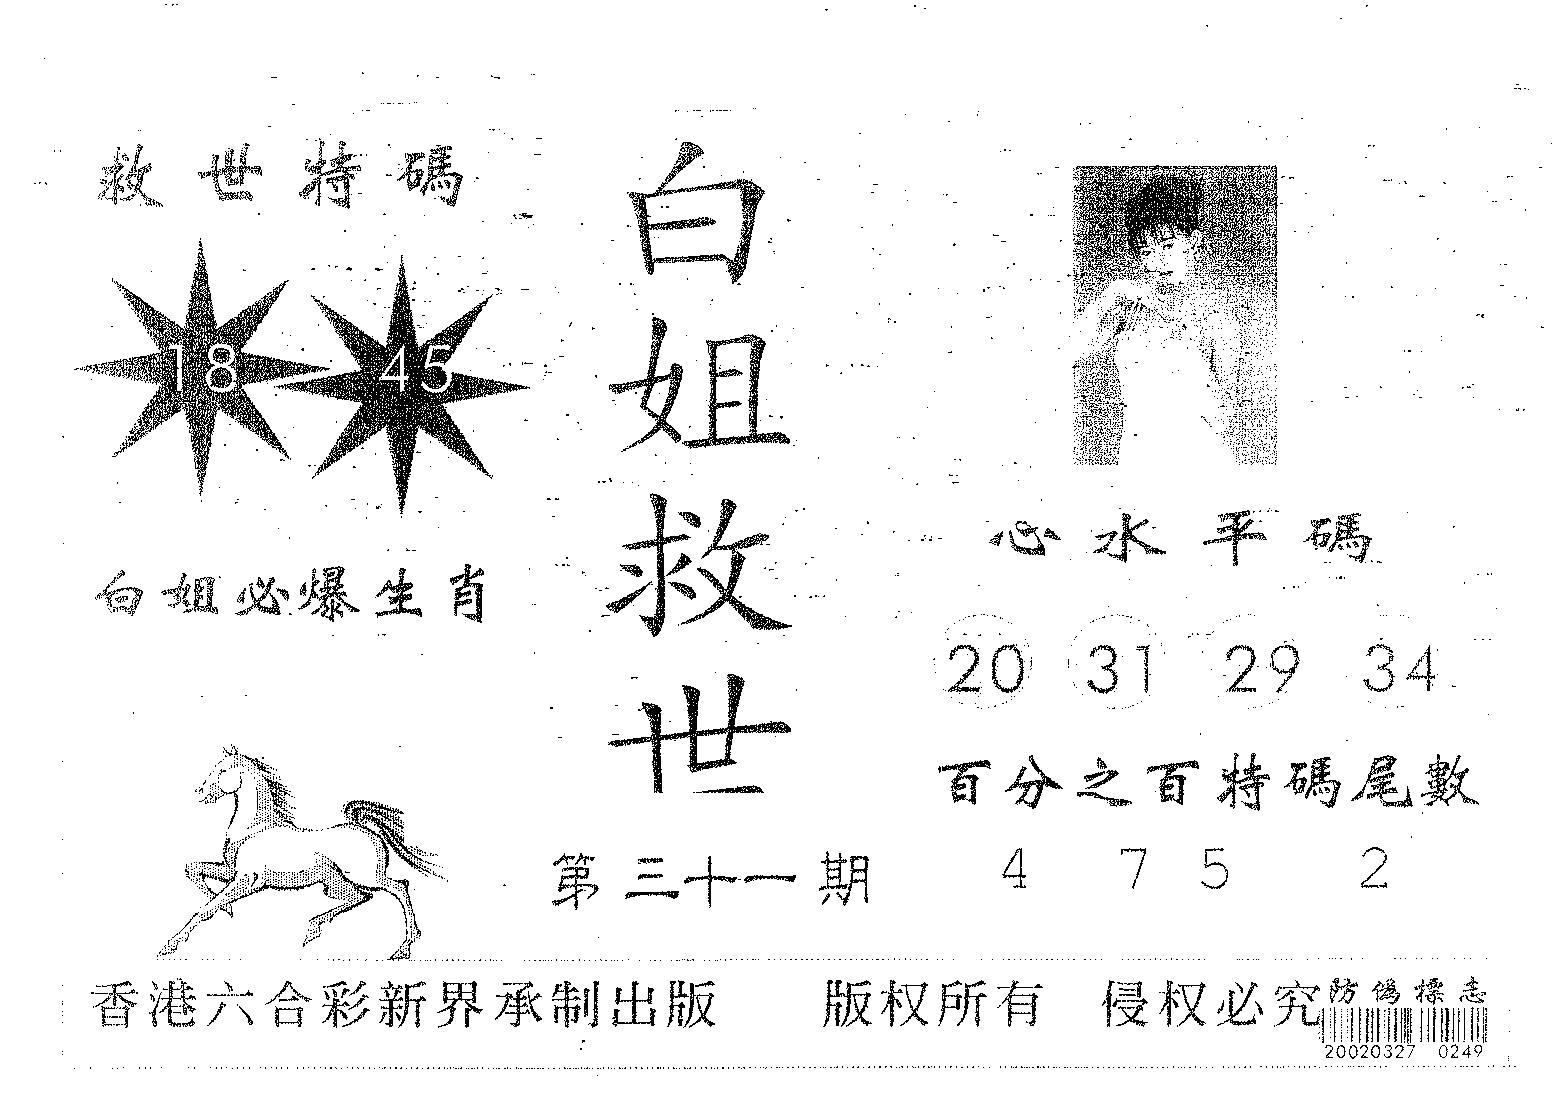 救世特碼
18 45
白姐必爆生肖
白姐救世
第三十一期
心水平碼
20 31 29 34
百分之百特碼尾數
4 7 5 2
香港六合彩新界承制出版 版权所有 侵权必究
防偽標志
20020327 0249